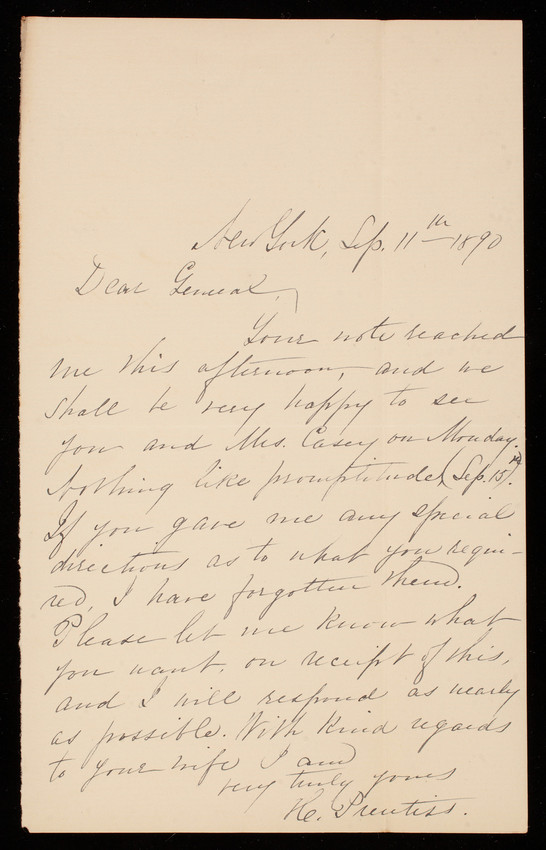 New York, Sep. 11th 1890
Dear General,
Your note reached
me this afternoon, and we
shall be very happy to see
you and Mrs. Casey on Monday.
Nothing like promptitude (Sep. 15th).
If you gave me any special
directions as to what you requi-
red, I have forgotten them.
Please let me know what
you want, on receipt of this,
and I will respond as nearly
as possible. With kind regards
to your wife I am
very truly yours
Prentiss.